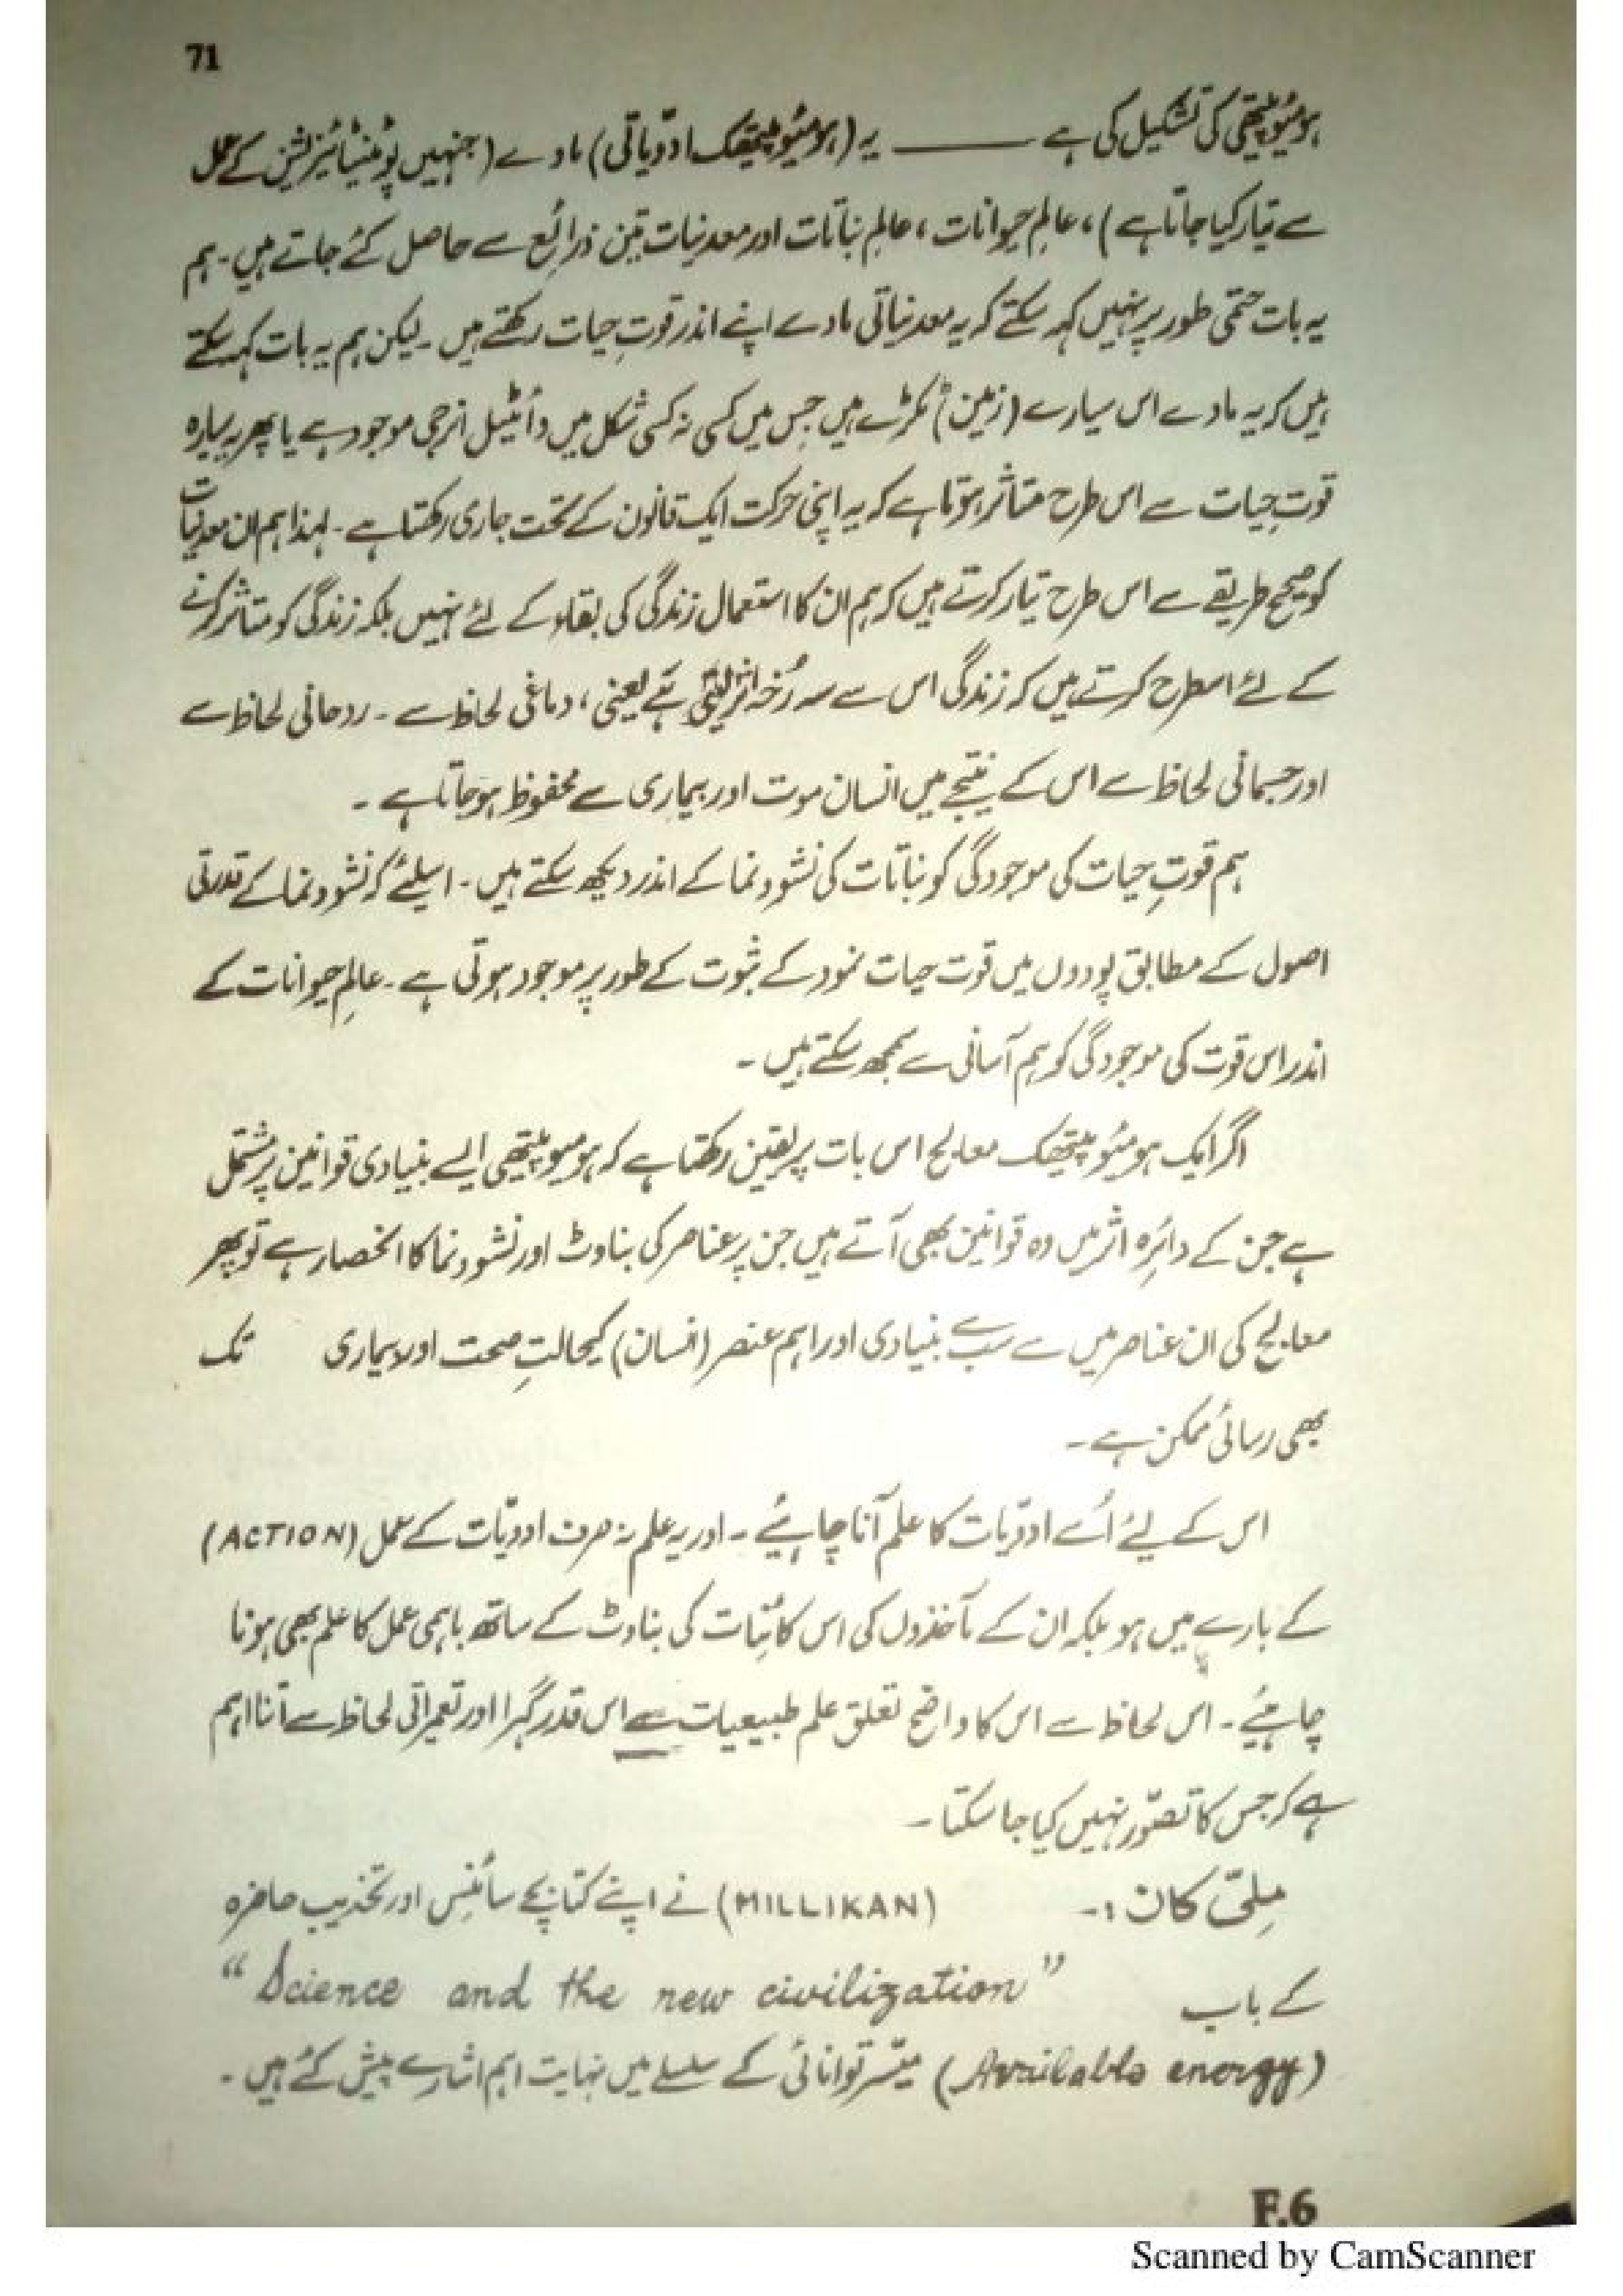 71
ہومیوپیتھی کی تشکیل کی ہے ——— یہ (ہومیوپیتھک ادویاتی) مادے (جنہیں پوٹینٹائزیشن کے عمل
سے تیار کیا جاتا ہے)، عالمِ حیوانات، عالمِ نباتات اور معدنیات تین ذرائع سے حاصل کئے جاتے ہیں۔ ہم
یہ بات حتمی طور پر نہیں کہہ سکتے کہ یہ معدنیاتی مادے اپنے اندر قوتِ حیات رکھتے ہیں۔ لیکن ہم یہ بات کہہ سکتے
ہیں کہ یہ مادے اس سیارے (زمین) ٹکڑے ہیں جس میں کسی نہ کسی شکل میں وائیٹیل انرجی موجود ہے یا پھر یہ سیارہ
قوتِ حیات سے اس طرح متاثر ہوتا ہے کہ یہ اپنی حرکت ایک قانون کے تحت جاری رکھتا ہے۔ لہذا ہم ان معدنیات
کو صحیح طریقے سے اس طرح تیار کرتے ہیں کہ ہم ان کا استعمال زندگی کی بقاء کے لئے نہیں بلکہ زندگی کو متاثر کرنے
کے لئے اسطرح کرتے ہیں کہ زندگی اس سے سہ رُخہ اثر لیتی ہے یعنی، دماغی لحاظ سے۔ روحانی لحاظ سے
اور جسمانی لحاظ سے اس کے نتیجے میں انسان موت اور بیماری سے محفوظ ہو جاتا ہے۔
ہم قوتِ حیات کی موجودگی کو نباتات کی نشوونما کے اندر دیکھ سکتے ہیں۔ اسلئے کہ نشوونما کے قدرتی
اصول کے مطابق پودوں میں قوت حیات نمود کے ثبوت کے طور پر موجود ہوتی ہے۔ عالمِ حیوانات کے
اندر اس قوت کی موجودگی کو ہم آسانی سے سمجھ سکتے ہیں۔
اگر ایک ہومیوپیتھک معالج اس بات پر یقین رکھتا ہے کہ ہومیوپیتھی ایسے بنیادی قوانین پر مشتمل
ہے جن کے دائرہ اثر میں وہ قوانین بھی آتے ہیں جن پر عناصر کی بناوٹ اور نشوونما کا انحصار ہے تو پھر
معالج کی ان عناصر میں سے سب سے بنیادی اور اہم عنصر (انسان) کیحالتِ صحت اور بیماری تک
بھی رسائی ممکن ہے۔
اس کے لیے اُسے ادویات کا علم آنا چاہیئے۔ اور یہ علم نہ صرف ادویات کے عمل (ACTION)
کے بارے میں ہو بلکہ ان کے مآخذوں کی اس کائنات کی بناوٹ کے ساتھ باہمی عمل کا علم بھی ہونا
چاہیئے۔ اس لحاظ سے اس کا واضح تعلق علم طبیعیات سے اس قدر گہرا اور تعمیراتی لحاظ سے اتنا اہم
ہے کہ جس کا تصوّر نہیں کیا جا سکتا۔
مِلی کان :۔ (MILLIKAN) نے اپنے کتابچے سائنس اور تہذیب حاضرہ
"Science and the new civilization" کے باب
(Available energy) میسّر توانائی کے سلسلے میں نہایت اہم اشارے پیش کئے ہیں۔
F.6
Scanned by CamScanner